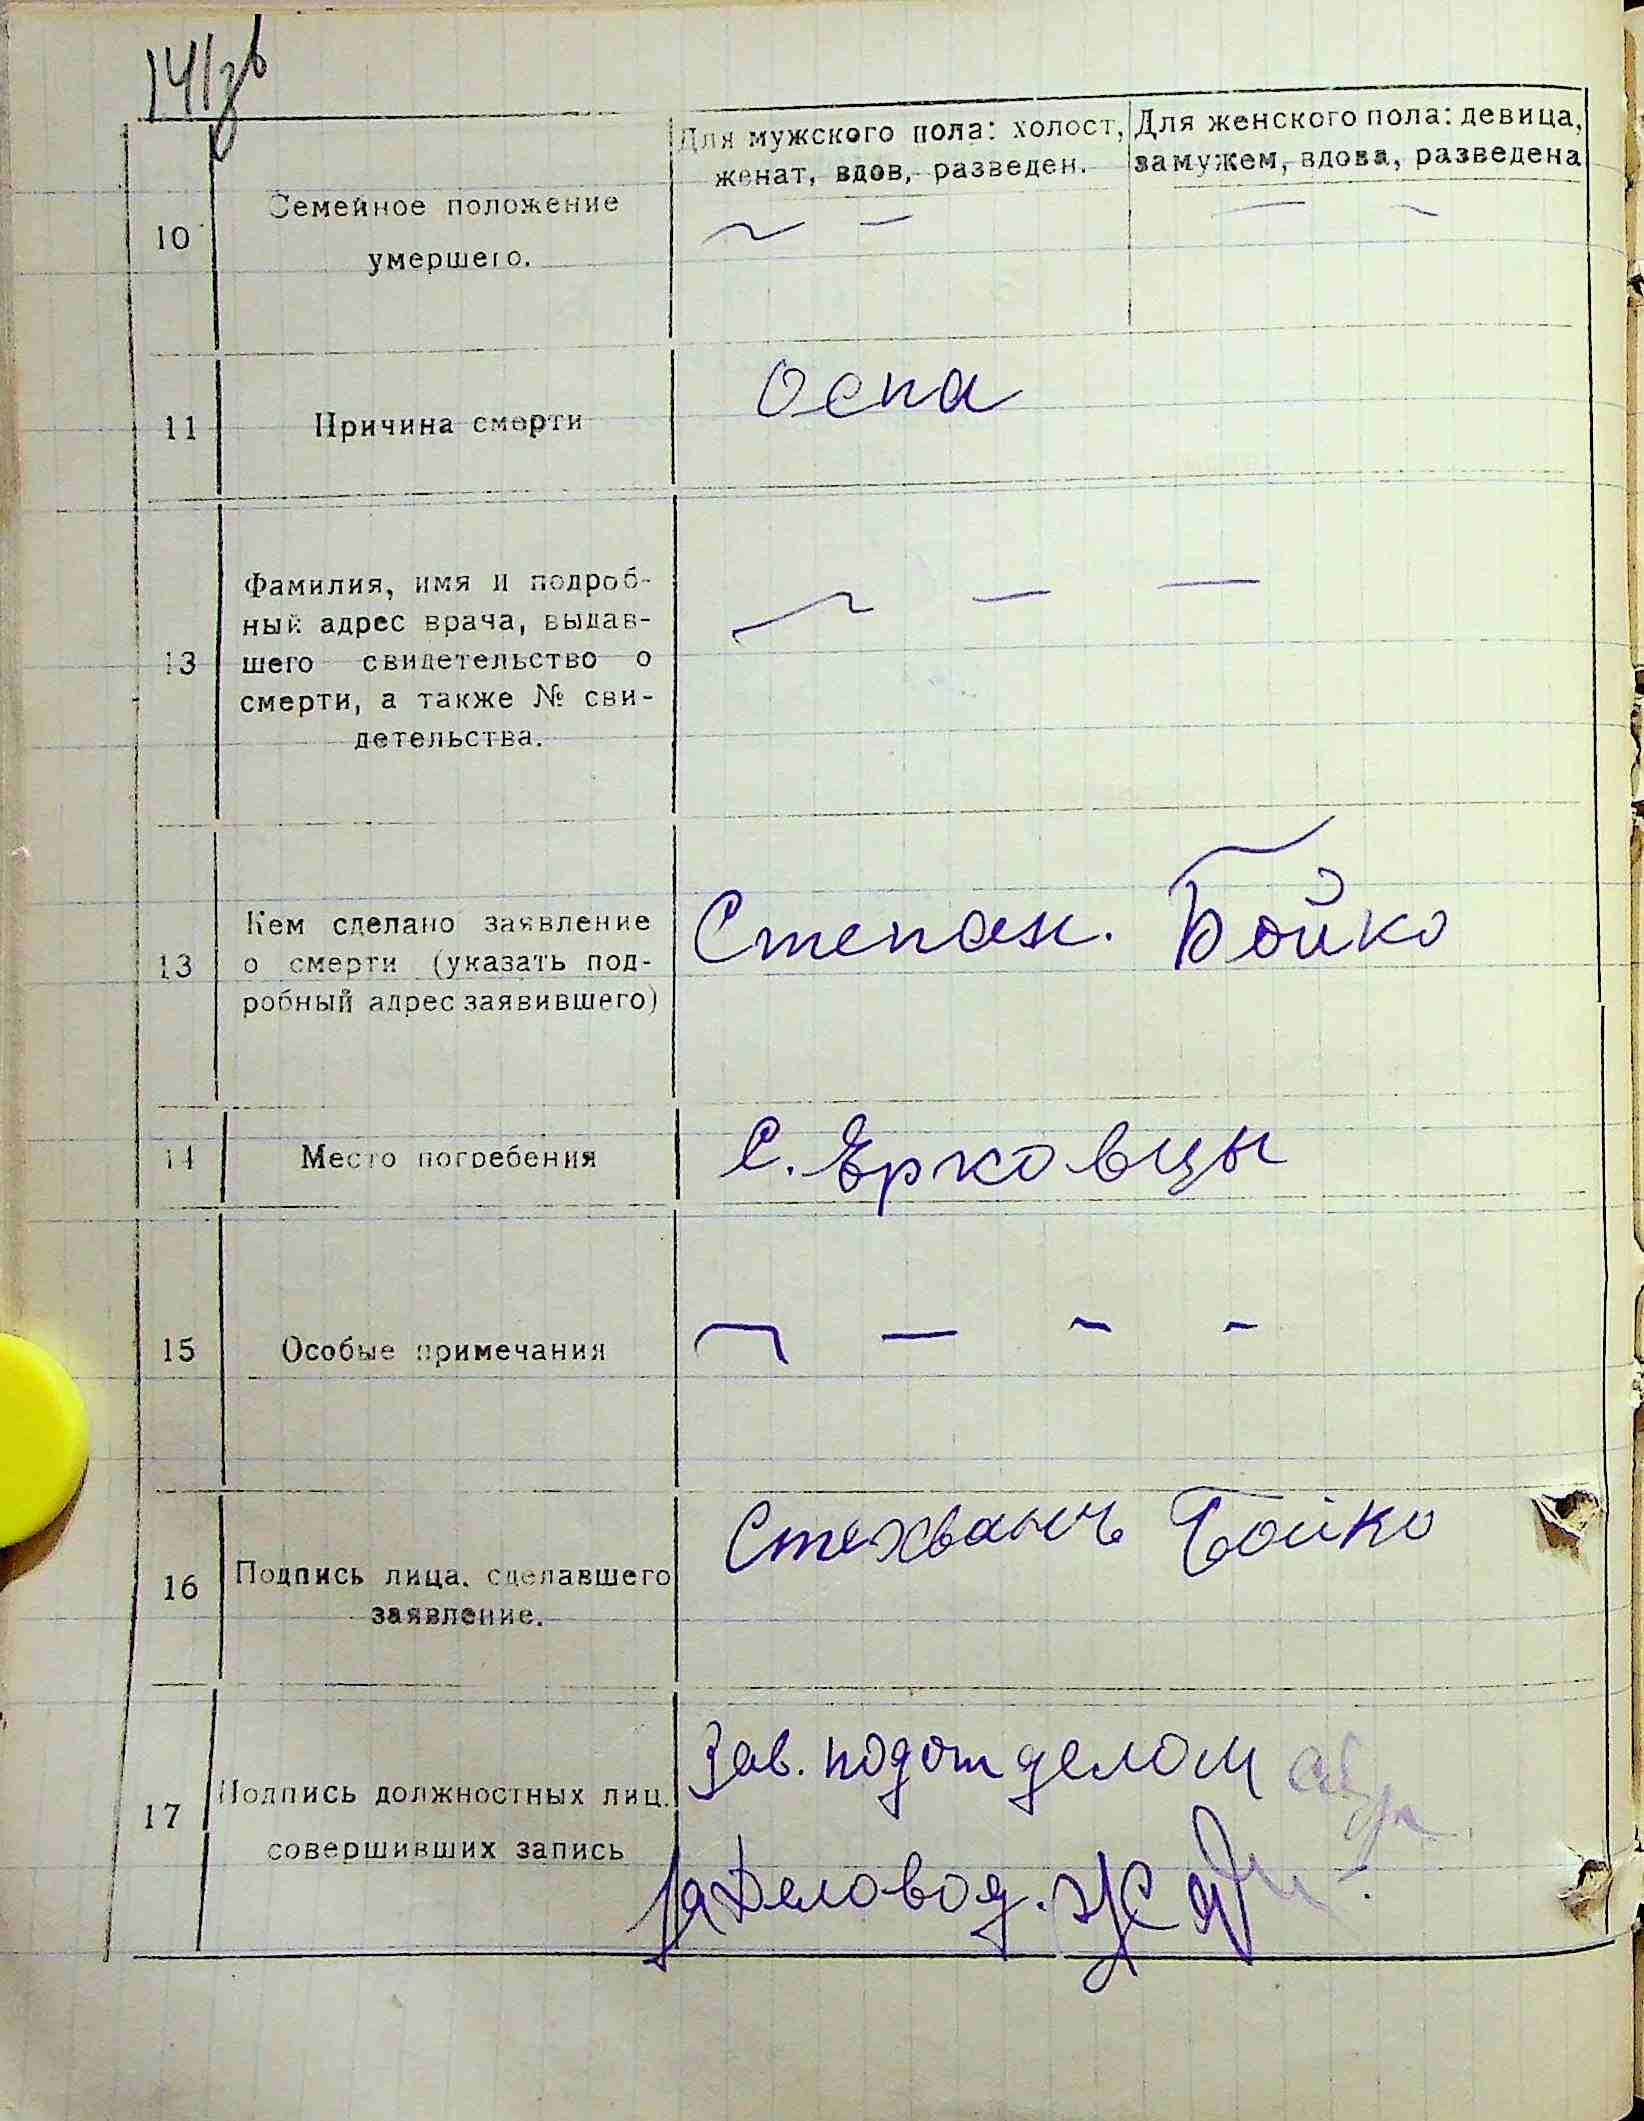 141зв
Для мужского пола: холост,
женат, вдов, разведен.
Для женского пола: девица,
замужем, вдова, разведена
10
Семейное положение
умершего.
~ —
— ~
11
Причина смерти
Оспа
13
Фамилия, имя и подроб-
ный адрес врача, выдав-
шего свидетельство о
смерти, а также № сви-
детельства.
~ — —
13
Кем сделано заявление
о смерти (указать под-
робный адрес заявившего)
Степан. Бойко
14
Место погребения
С. Ерковцы
15
Особые примечания
~ — - -
16
Подпись лица, сделавшего
заявление.
Стехванъ Бойко
17
Подпись должностных лиц,
совершивших запись
Зав. подотделом
за Деловод.